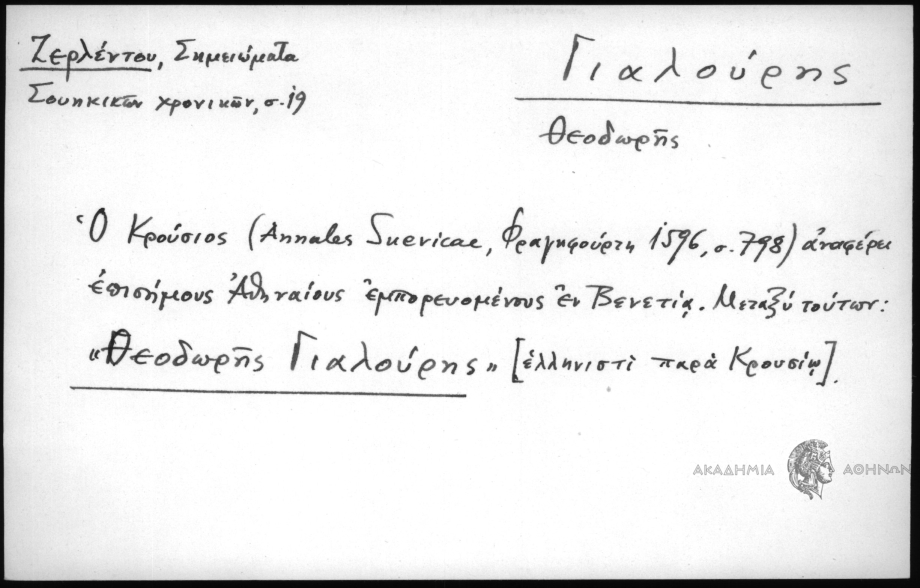 Ζερλέντου, Σημειώματα
Σουηκικῶν χρονικῶν, σ. 19
Γιαλούρης
Θεοδωρῆς
Ὁ Κρούσιος (Annales Suevicae, Φραγκφούρτη 1596, σ. 798) ἀναφέρει
ἐπισήμους Ἀθηναίους ἐμπορευομένους ἐν Βενετίᾳ. Μεταξὺ τούτων:
«Θεοδωρῆς Γιαλούρης» [ἑλληνιστὶ παρὰ Κρουσίῳ].
ΑΚΑΔΗΜΙΑ ΑΘΗΝΩΝ